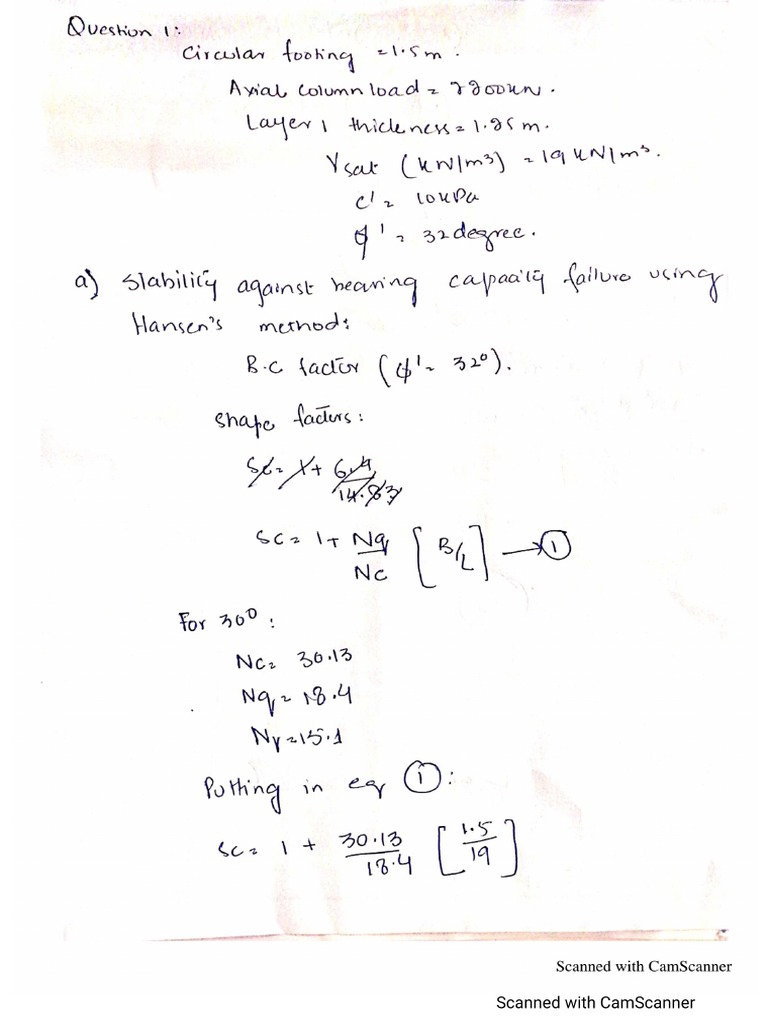 Question 1:
Circular footing = 1.5m.
Axial column load = 2200kN.
Layer 1 thickness = 1.25m.
γsat (kN/m³) = 19 kN/m³.
c' = 10kPa
φ' = 32degree.
a) Stability against bearing capacity failure using
Hansen's method:
B.C factor (φ' = 32°).
Shape factors:
Sc = 1 + Nq/Nc [B/L] → ①
For 30°:
Nc = 30.13
Nq = 18.4
Nγ = 15.1
Putting in eq ①:
Sc = 1 + 30.13/18.4 [1.5/19]
Scanned with CamScanner
Scanned with CamScanner